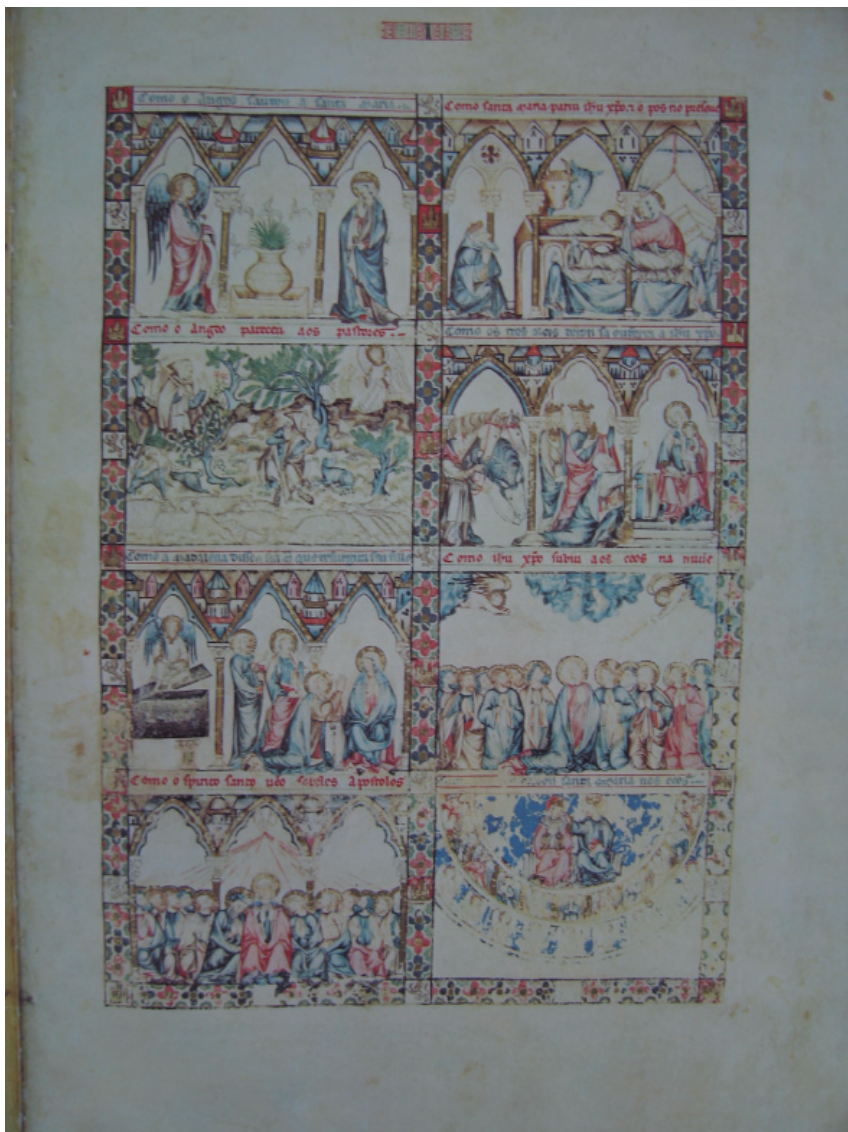 Como o Angeo saudou a santa maria
Como santa maria pariu ihu xpo. ⁊ o pos no preseue
Como o Angeo pareceu aos pastores.
Como os tres a ihu xpo
Como a Madalena que ihu
Como ihu xpo subiu aos ceos na nuue
Como o spirito santo ueo sobelos Apostolos
santa maria nos ceos